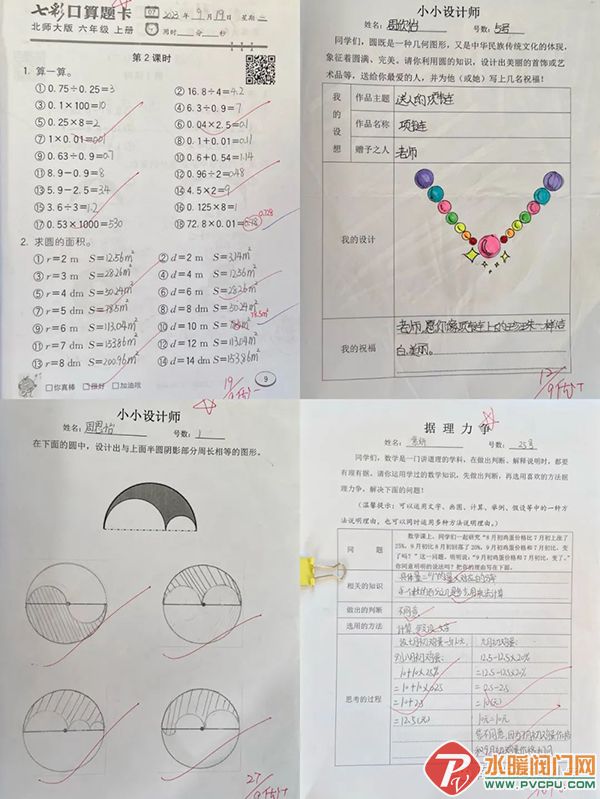 七彩口算题卡
北师大版 六年级 上册
07
2023年9月19日 星期二
用时 分 秒
第 2 课时
1. 算一算。
① 0.75÷0.25=3
② 16.8÷4=4.2
③ 0.1×100=10
④ 6.3÷0.9=7
⑤ 0.25×8=2
⑥ 0.04×2.5=0.1
⑦ 1×0.01=0.01
⑧ 0.1+0.01=0.11
⑨ 0.63÷0.9=0.7
⑩ 0.6+0.54=1.14
⑪ 8.9-0.9=8
⑫ 0.96÷2=0.48
⑬ 5.9-2.5=3.4
⑭ 4.5×2=9
⑮ 3.6÷3=1.2
⑯ 0.125×8=1
⑰ 0.53×1000=530
⑱ 72.8×0.01=
0.728
2. 求圆的面积。
① r=2 m S=12.56m²
② d=2 m S=3.14m²
③ r=3 m S=28.26m²
④ d=4 m S=12.56m²
⑤ r=4 dm S=50.24m²
⑥ d=6 m S=28.26m²
⑦ r=5 dm S=78.5m²
⑧ d=8 dm S=50.24m²
⑨ r=6 m S=113.04m²
⑩ d=10 m S=
78.5m²
⑪ r=7 dm S=153.86m²
⑫ d=12 m S=113.04m²
⑬ r=8 dm S=200.96m²
⑭ d=14 dm S=153.86m²
你真棒 很好 加油哦
9
小小设计师
姓名: 号数: 5号
同学们,圆既是一种几何图形,又是中华民族传统文化的体现,
象征着圆满、完美。请你利用圆的知识,设计出美丽的首饰或艺
术品等,送给你最爱的人,并为他(或她)写上几名祝福!
我的设想
作品主题 送人的项链
作品名称 项链
赠予之人 老师
我的设计
我的祝福
老师,愿你像项链上的珍珠一样洁
白、美丽。
小小设计师
姓名: 周思怡 号数: 1
在下面的圆中,设计出与上面半圆阴影部分周长相等的图形。
据理力争
姓名: 号数: 25号
同学们,数学是一门讲道理的学科,在做出判断、解释说明时,都要
有理有据。请你运用学过的数学知识,先做出判断,再选用喜欢的方法据
理力争,解决下面的问题!
(温馨提示:可以运用文字、画图、计算、举例、假设等中的一种方
法说明理由,也可以同时运用多种方法说明理由。)
问 题
数学课上,同学们一起研究“8月初鸡蛋价格比7月初上涨了
25%,9月初比8月初回落了20%,9月初鸡蛋价格和7月初比,变
了吗?”这一问题。明明说:“9月初鸡蛋价格和7月初比,变了。”
你同意明明的说法吗?把你的理由写在下面。
相关的知识
做出的判断 不同意
选用的方法 计算
思考的过程
10+10×25%
=10+10×0.25
=10+2.5
=12.5(元)
12.5-12.5×20%
=12.5-12.5×
=12.5-2.5
=10(元)
10元=10元
水暖阀门网
WWW.PVCPU.COM